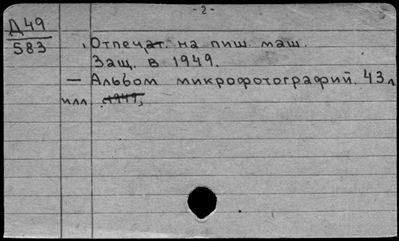 - 2 -
Д 49
583
Отпечат. на пиш. маш.
Защ. в 1949.
— Альбом микрофотографий. 43 л
илл. 1949,